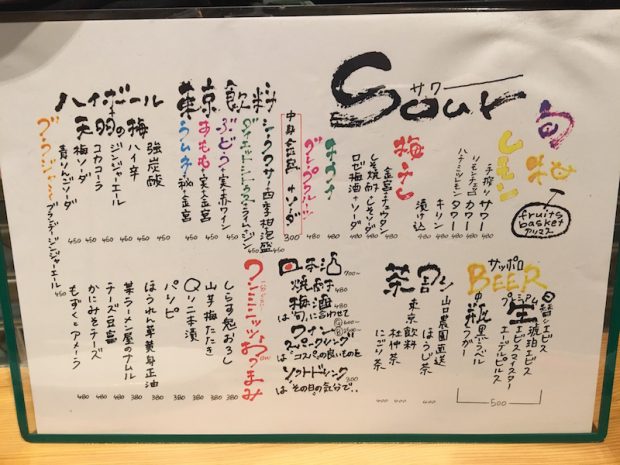 Sour
サワー
旬
柑
fruits
basket
アリマスー
レモン
手搾りサワー
リモンチェッロカワー
ハチミツレモンタワー
480
480
480
梅干し
金宮+チュウタン
しそ焼酎+しそソーダ
ロゼ梅酒+ソーダ
キリン
漬け込
480
480
キウイ
480
グレープフルーツ
480
中身 金宮 +ソーダ
300
東京飲料
シークワサー+四季柑泡盛
ダイエットシトラス+ライムジン
ぶどう+実+赤ワイン
すもも+実+金宮
ラムネ+秘+金宮
450
450
450
450
450
ハイボール
天羽の梅
強炭酸
ハイ辛
ジンジャーエール
コカコーラ
梅ソーダ
青りんごソーダ
450
450
450
450
450
450
ブランジン ブランデージンジャーエール
450
サッポロ
BEER
生
日替エビス
プレミアム
琥珀エビス
エビスマイスター
エーデルピルス
中瓶
黒ラベル
赤ラガー
500
茶割り
山口農園直送
ほうじ茶
400
東京飲料
杜仲茶
400
にごり茶
400
日本酒 700〜
焼酎 480
梅酒 480
は「旬」に合わせて
ワイン
スパークリング
は"コスパ"の良いものを
ソフトドリンク 300
は"その日の気分で"..
ワンミニッツおつまみ
しらす鬼おろし
山芋梅たたき
Qリ一本漬
パリピ
ほうれん草黄身正油
某ラーメン屋のナムル
チーズ豆冨
かにみそチーズ
もずくとアメーラ
380
380
380
380
380
380
480
480
480